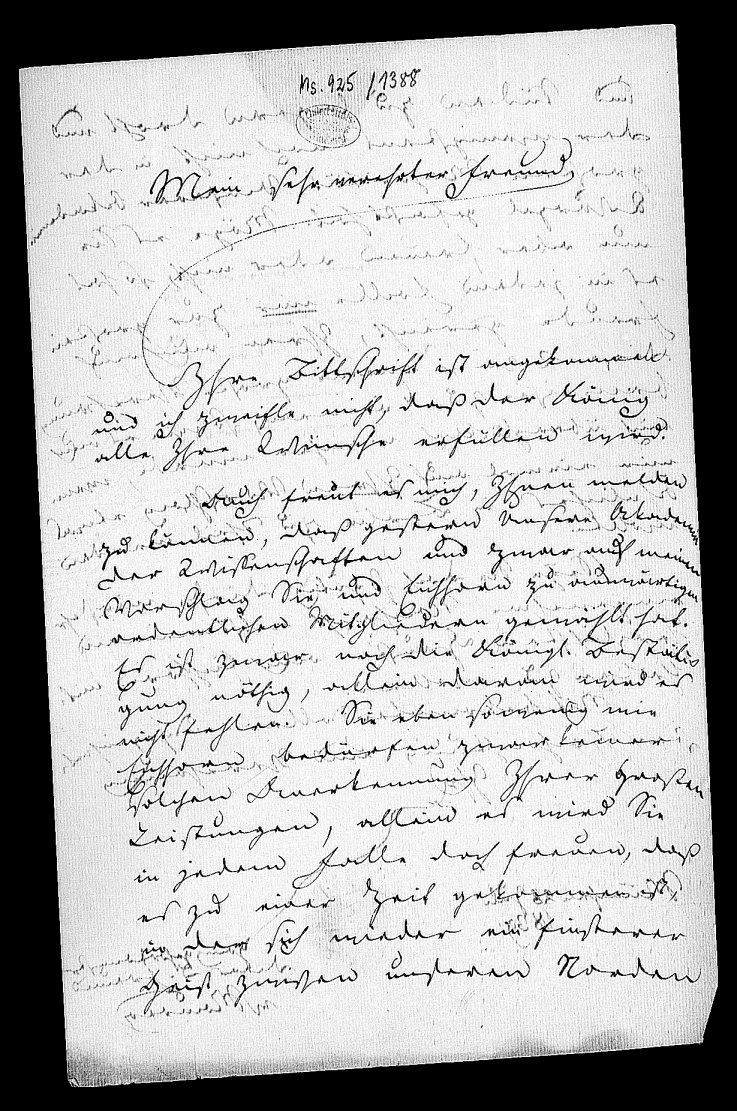 Ms. 925 / 1388
Mein sehr verehrter Freund,
Ihre Bittschrift ist angekommen
und ich zweifle nicht, daß der König
alle Ihre Wünsche erfüllen wird.
Auch freut es mich, Ihnen melden
zu können, daß gestern unsere Akademie
der Wissenschaften und zwar auf meinen
Vorschlag Sie und Eichhorn zu auswärtigen
ordentlichen Mitgliedern gewählt hat.
Es ist zwar noch die Königl. Bestäti-
gung nöthig, allein daran wird es
nicht fehlen. Sie eben sowenig wie
Eichhorn bedürfen zwar keiner
solchen Anerkennung Ihrer großen
Leistungen, allein es wird Sie
in jedem Falle doch freuen, daß
es zu einer Zeit gekommen ist,
in der sich wieder ein finsterer
Geist zwischen unseren Norden